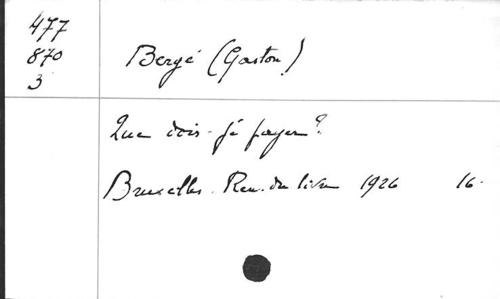 477
870
3
Bergé (Gaston)
Que dois-je payer?
Bruxelles. Ren. du livre 1926 16.